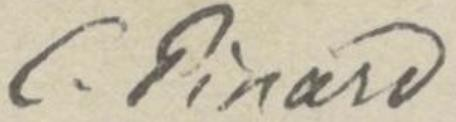 C. Pinard